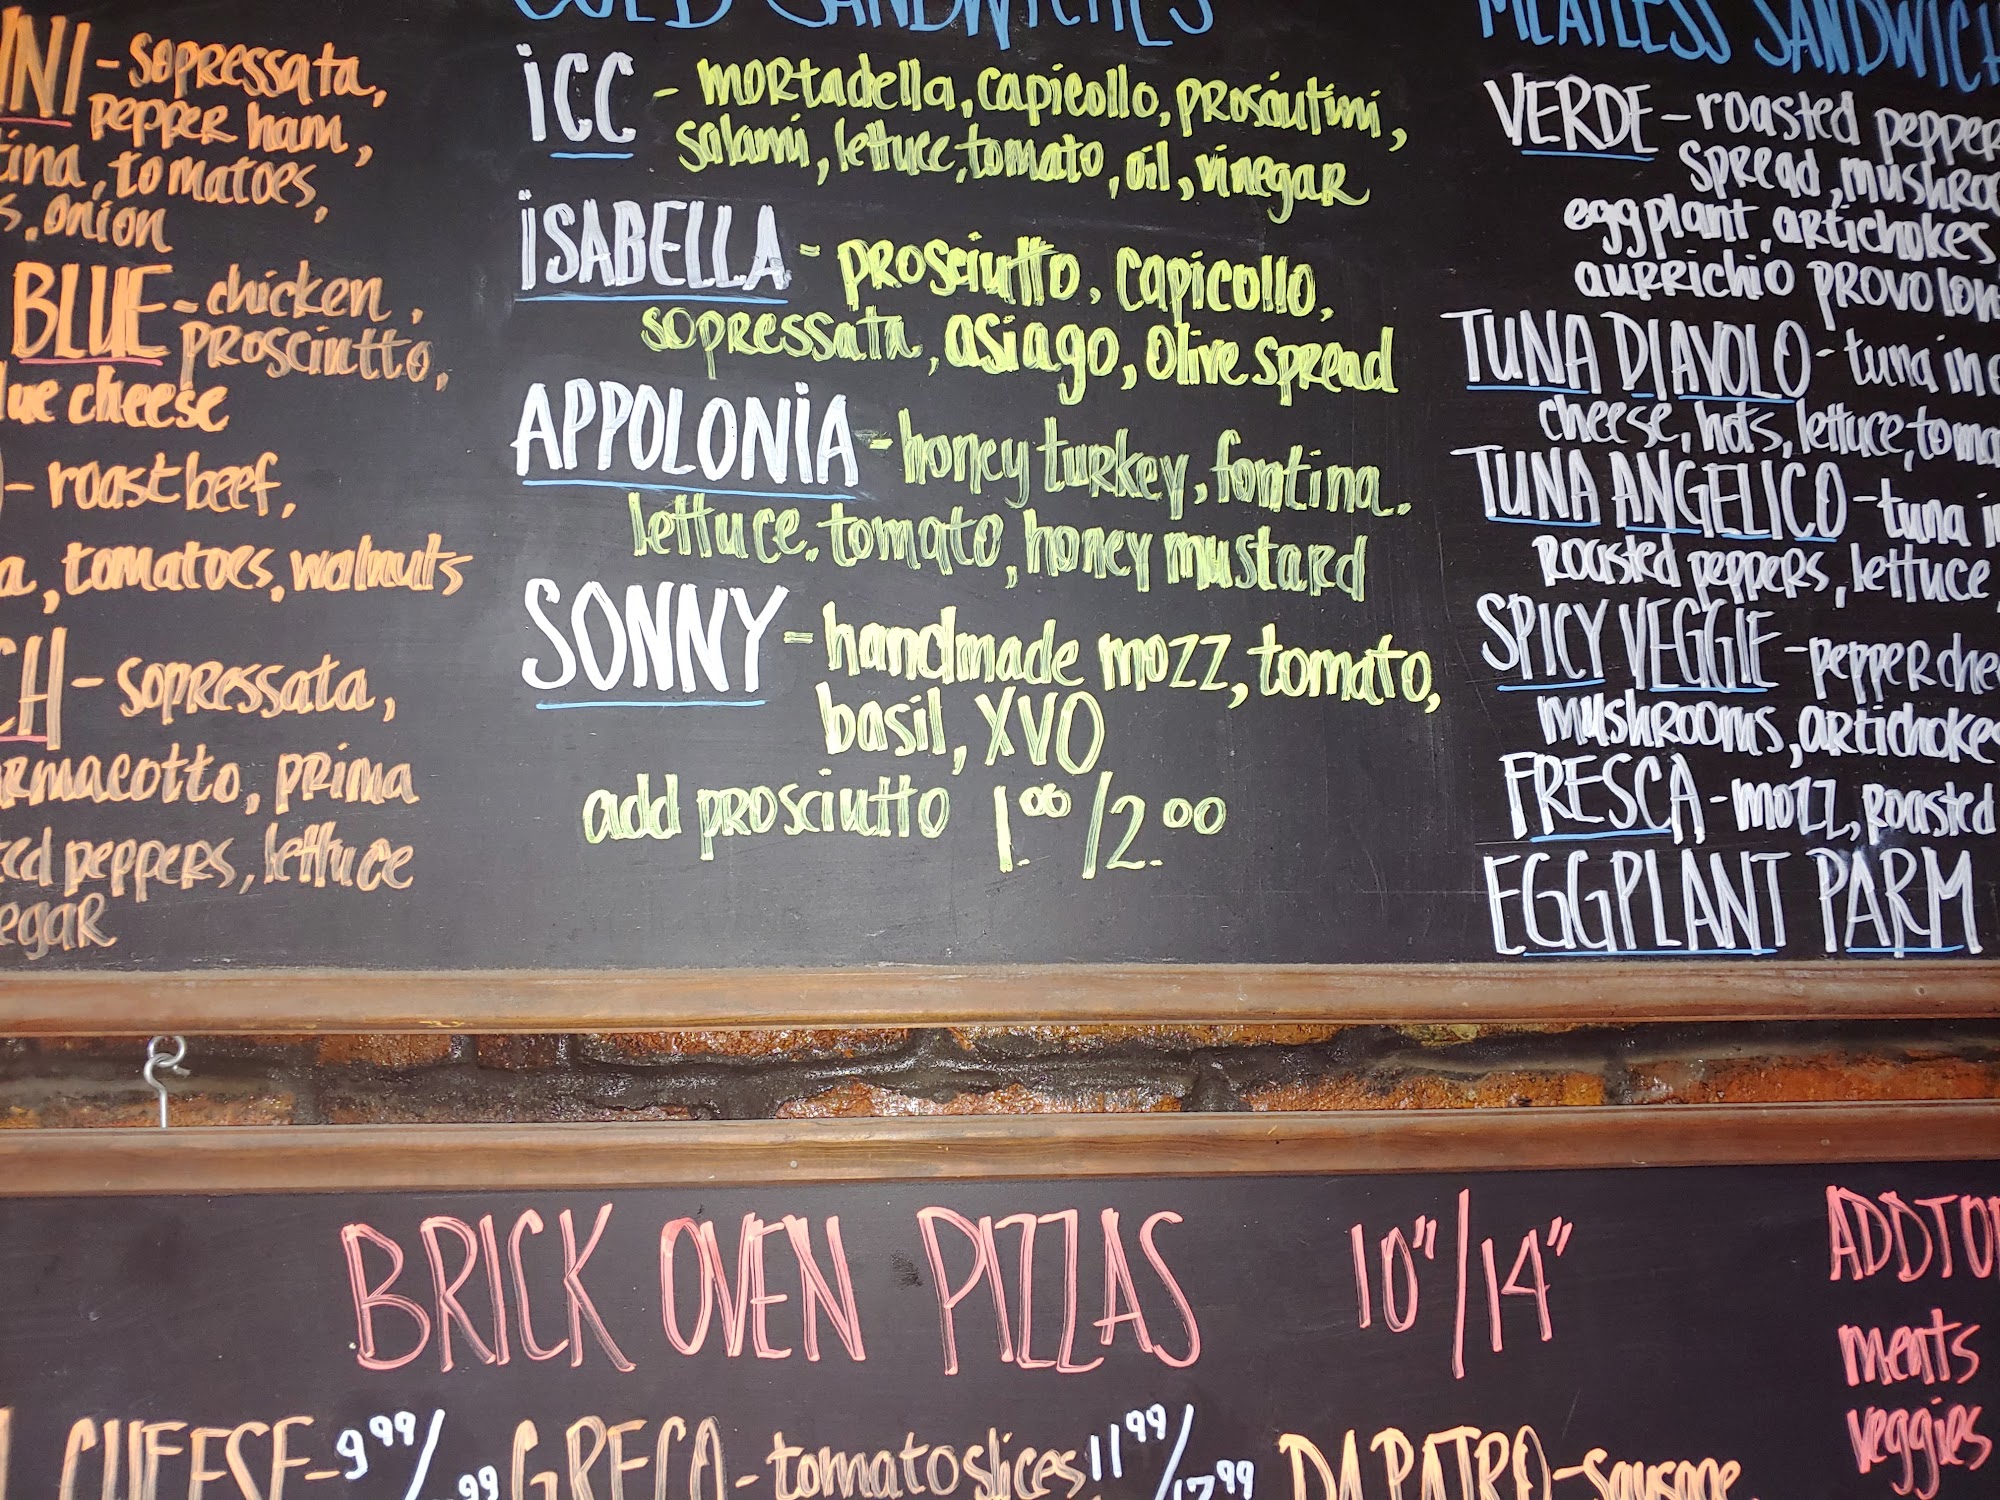 - sopressata,
pepper ham,
, tomatoes,
, onion
BLUE - chicken,
prosciutto,
cheese
- roast beef,
, tomatoes, walnuts
- sopressata,
, prima
peppers, lettuce
COLD SANDWICHES
ICC - mortadella, capicollo, prosciutini,
salami, lettuce, tomato, oil, vinegar
ISABELLA - prosciutto, capicollo,
sopressata, asiago, olive spread
APPOLONIA - honey turkey, fontina,
lettuce, tomato, honey mustard
SONNY - handmade mozz, tomato,
basil, XVO
add prosciutto 1.00/2.00
MEATLESS SANDWICH
VERDE - roasted pepper
spread, mushroo
eggplant, artichokes
aurrichio provolon
TUNA DIAVOLO - tuna in
cheese, hots, lettuce, toma
TUNA ANGELICO - tuna in
roasted peppers, lettuce,
SPICY VEGGIE - pepper chee
mushrooms, artichokes
FRESCA - mozz, roasted
EGGPLANT PARM
BRICK OVEN PIZZAS 10"/14"
CHEESE - 9.99/
GRECO - tomato slices 11.99/
DA PATRO - sausage
ADD TO
meats
veggies